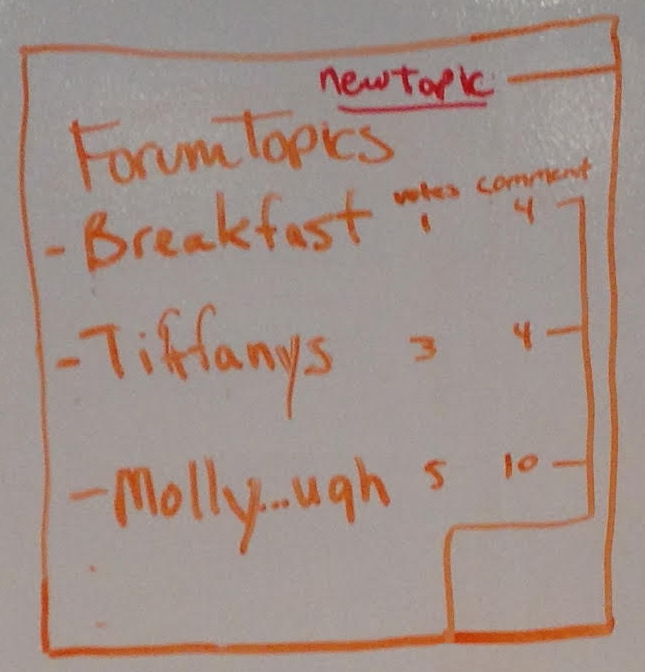 new topic
Forum Topics
votes comment
- Breakfast 1 4
- Tiffanys 3 4
- Molly...ugh 5 10